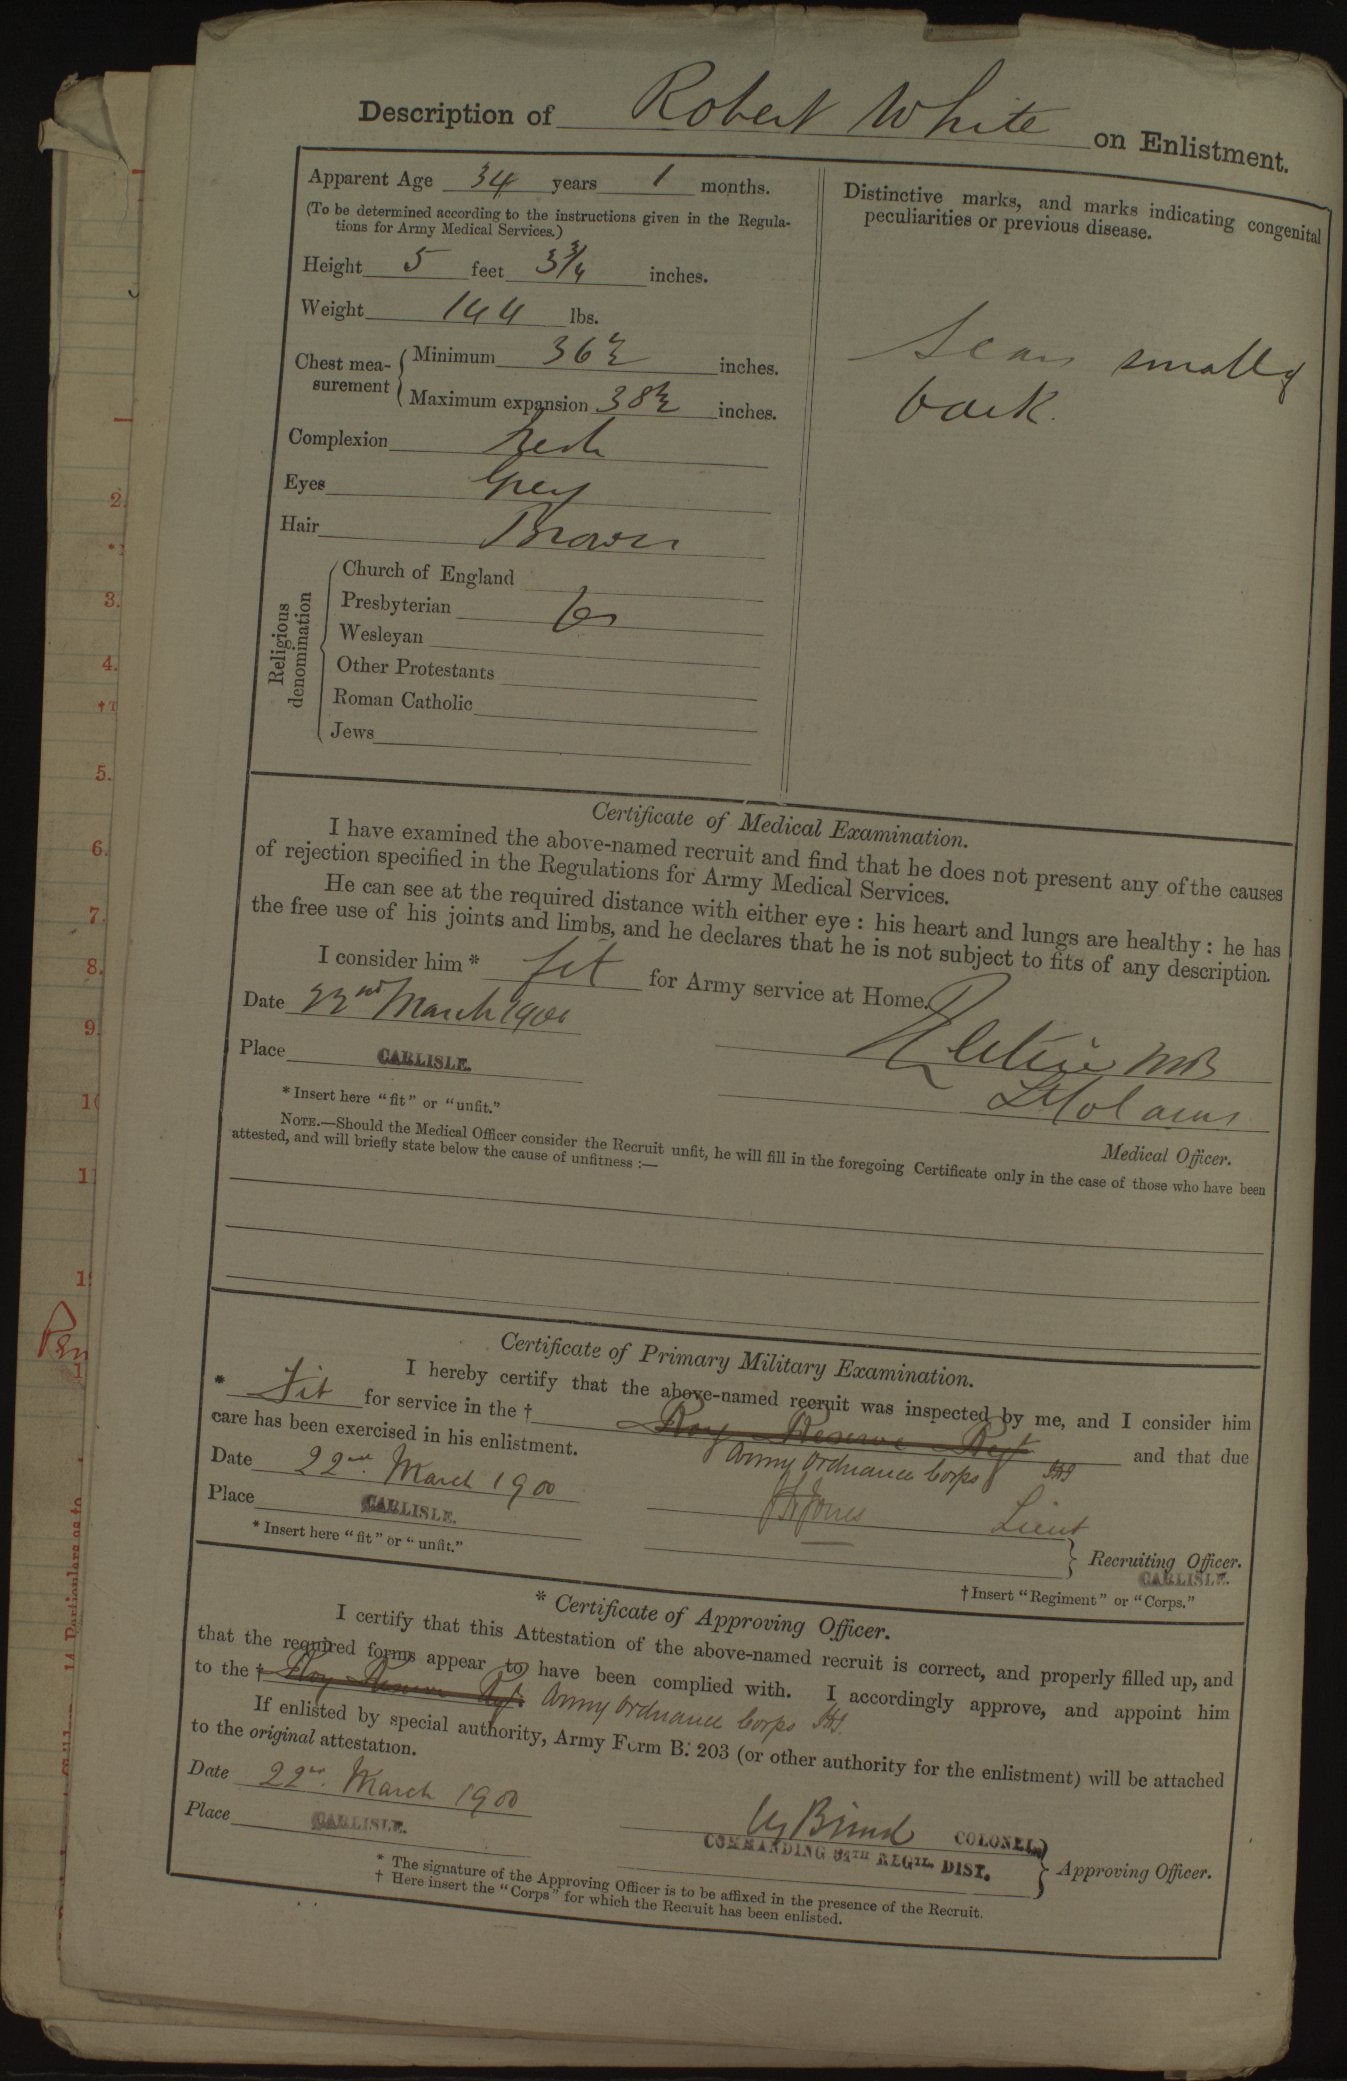 Description of Robert White on Enlistment.
Apparent Age 34 years 1 months.
(To be determined according to the instructions given in the Regula-
tions for Army Medical Services.)
Height 5 feet 3 3/4 inches.
Weight 144 lbs.
Chest mea-
surement
Minimum 36½ inches.
Maximum expansion 38½ inches.
Complexion fresh
Eyes Grey
Hair Brown
Religious
denomination
Church of England
Presbyterian Yes
Wesleyan
Other Protestants
Roman Catholic
Jews
Distinctive marks, and marks indicating congenital
peculiarities or previous disease.
Scars small of
back.
Certificate of Medical Examination.
I have examined the above-named recruit and find that he does not present any of the causes
of rejection specified in the Regulations for Army Medical Services.
He can see at the required distance with either eye: his heart and lungs are healthy: he has
the free use of his joints and limbs, and he declares that he is not subject to fits of any description.
I consider him * fit for Army service at Home.
Date 22nd March 1900
Place CARLISLE.
MB
* Insert here "fit" or "unfit."
Medical Officer.
NOTE.—Should the Medical Officer consider the Recruit unfit, he will fill in the foregoing Certificate only in the case of those who have been
attested, and will briefly state below the cause of unfitness:—
Certificate of Primary Military Examination.
I hereby certify that the above-named recruit was inspected by me, and I consider him
* Fit for service in the † Roy Reserve Regt and that due
Army Ordnance Corps
care has been exercised in his enlistment.
Date 22nd March 1900
Jones Lieut
Place CARLISLE.
Recruiting Officer.
CARLISLE.
* Insert here "fit" or "unfit."
† Insert "Regiment" or "Corps."
* Certificate of Approving Officer.
I certify that this Attestation of the above-named recruit is correct, and properly filled up, and
that the required forms appear to have been complied with. I accordingly approve, and appoint him
to the † Roy Reserve Regt. Army Ordnance Corps
If enlisted by special authority, Army Form B. 203 (or other authority for the enlistment) will be attached
to the original attestation.
Date 22nd March 1900
Place CARLISLE.
COLONEL.
COMMANDING 34TH REGTL. DIST.
Approving Officer.
* The signature of the Approving Officer is to be affixed in the presence of the Recruit.
† Here insert the "Corps" for which the Recruit has been enlisted.
2.
3.
4.
5.
6.
7.
8.
9.
10
11
14 Particulars as to